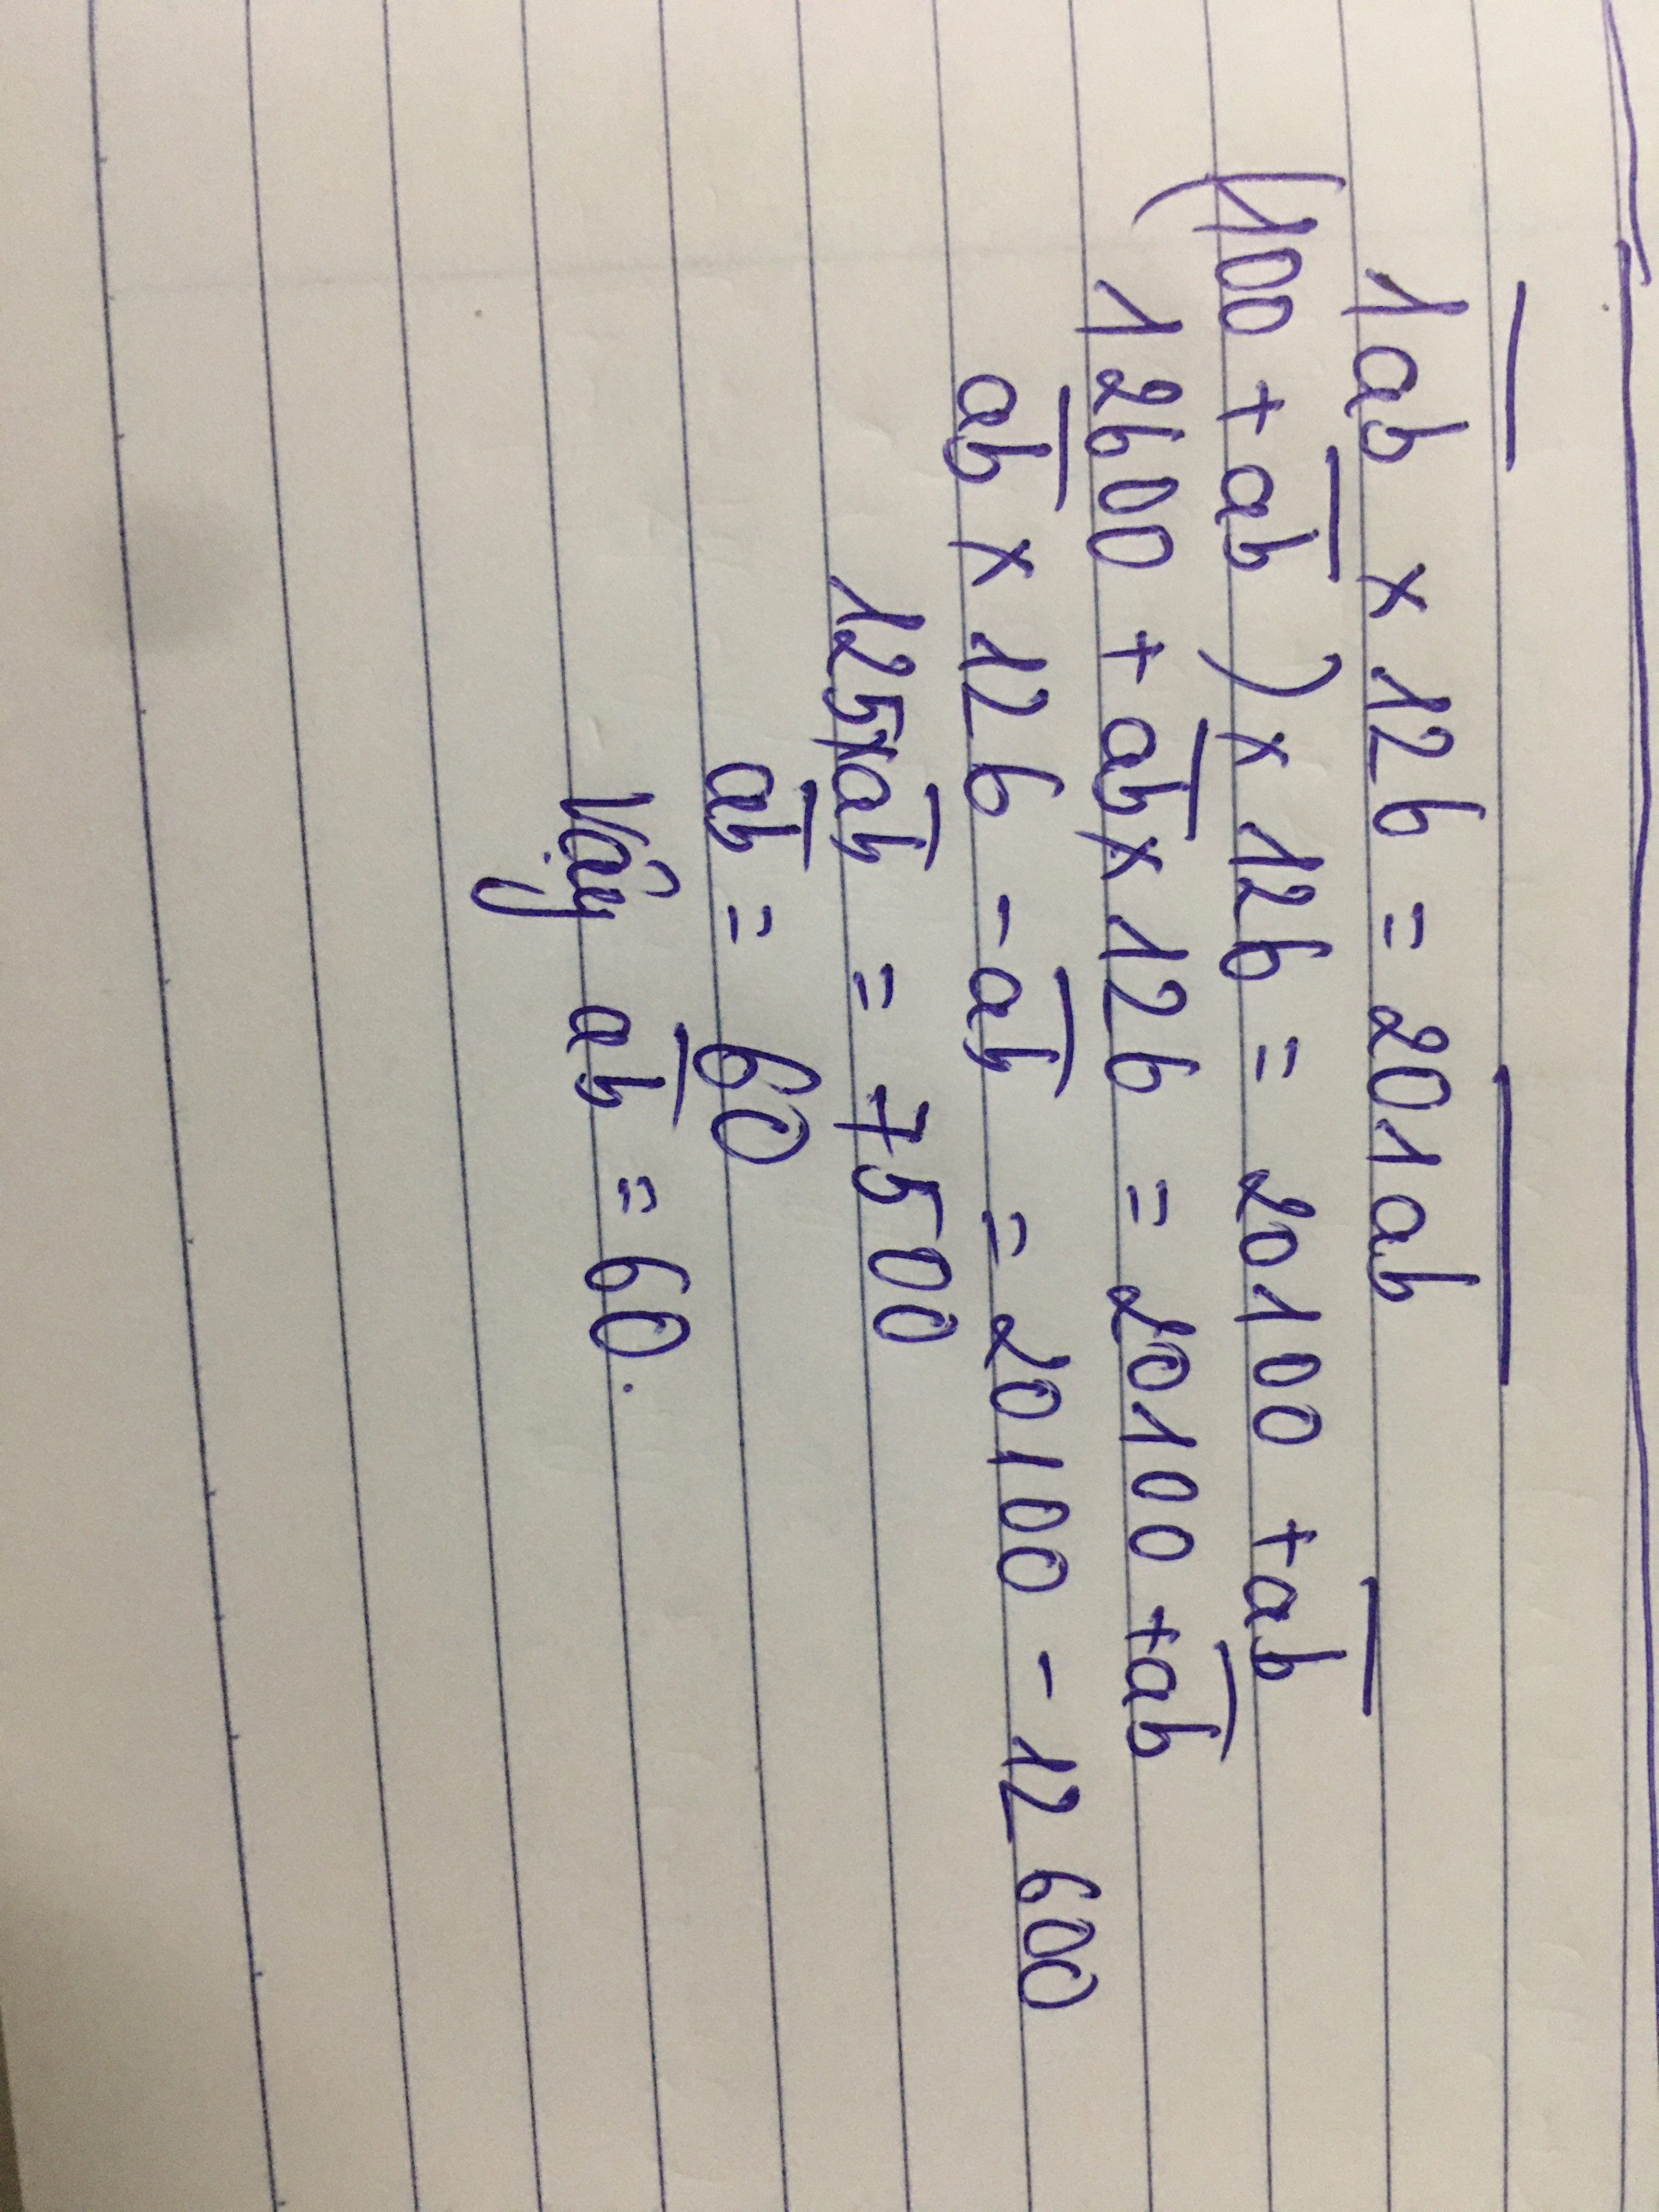 1ab × 126 = 201ab
(100 + ab) × 126 = 20100 + ab
12600 + ab × 126 = 20100 + ab
ab × 126 - ab = 20100 - 12600
125 × ab = 7500
ab = 60
Vậy ab = 60.